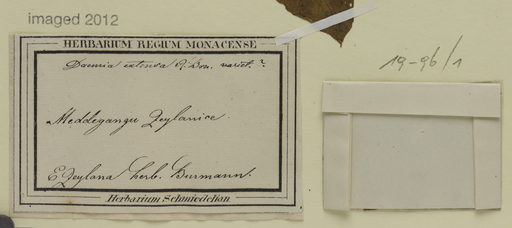 imaged 2012
HERBARIUM REGIUM MONACENSE
Daemia extensa R. Brn. variet.?
19-96/1
Meddegangu Zeylanice.
E Zeylana herb. Burmann.
Herbarium Schmiedelian